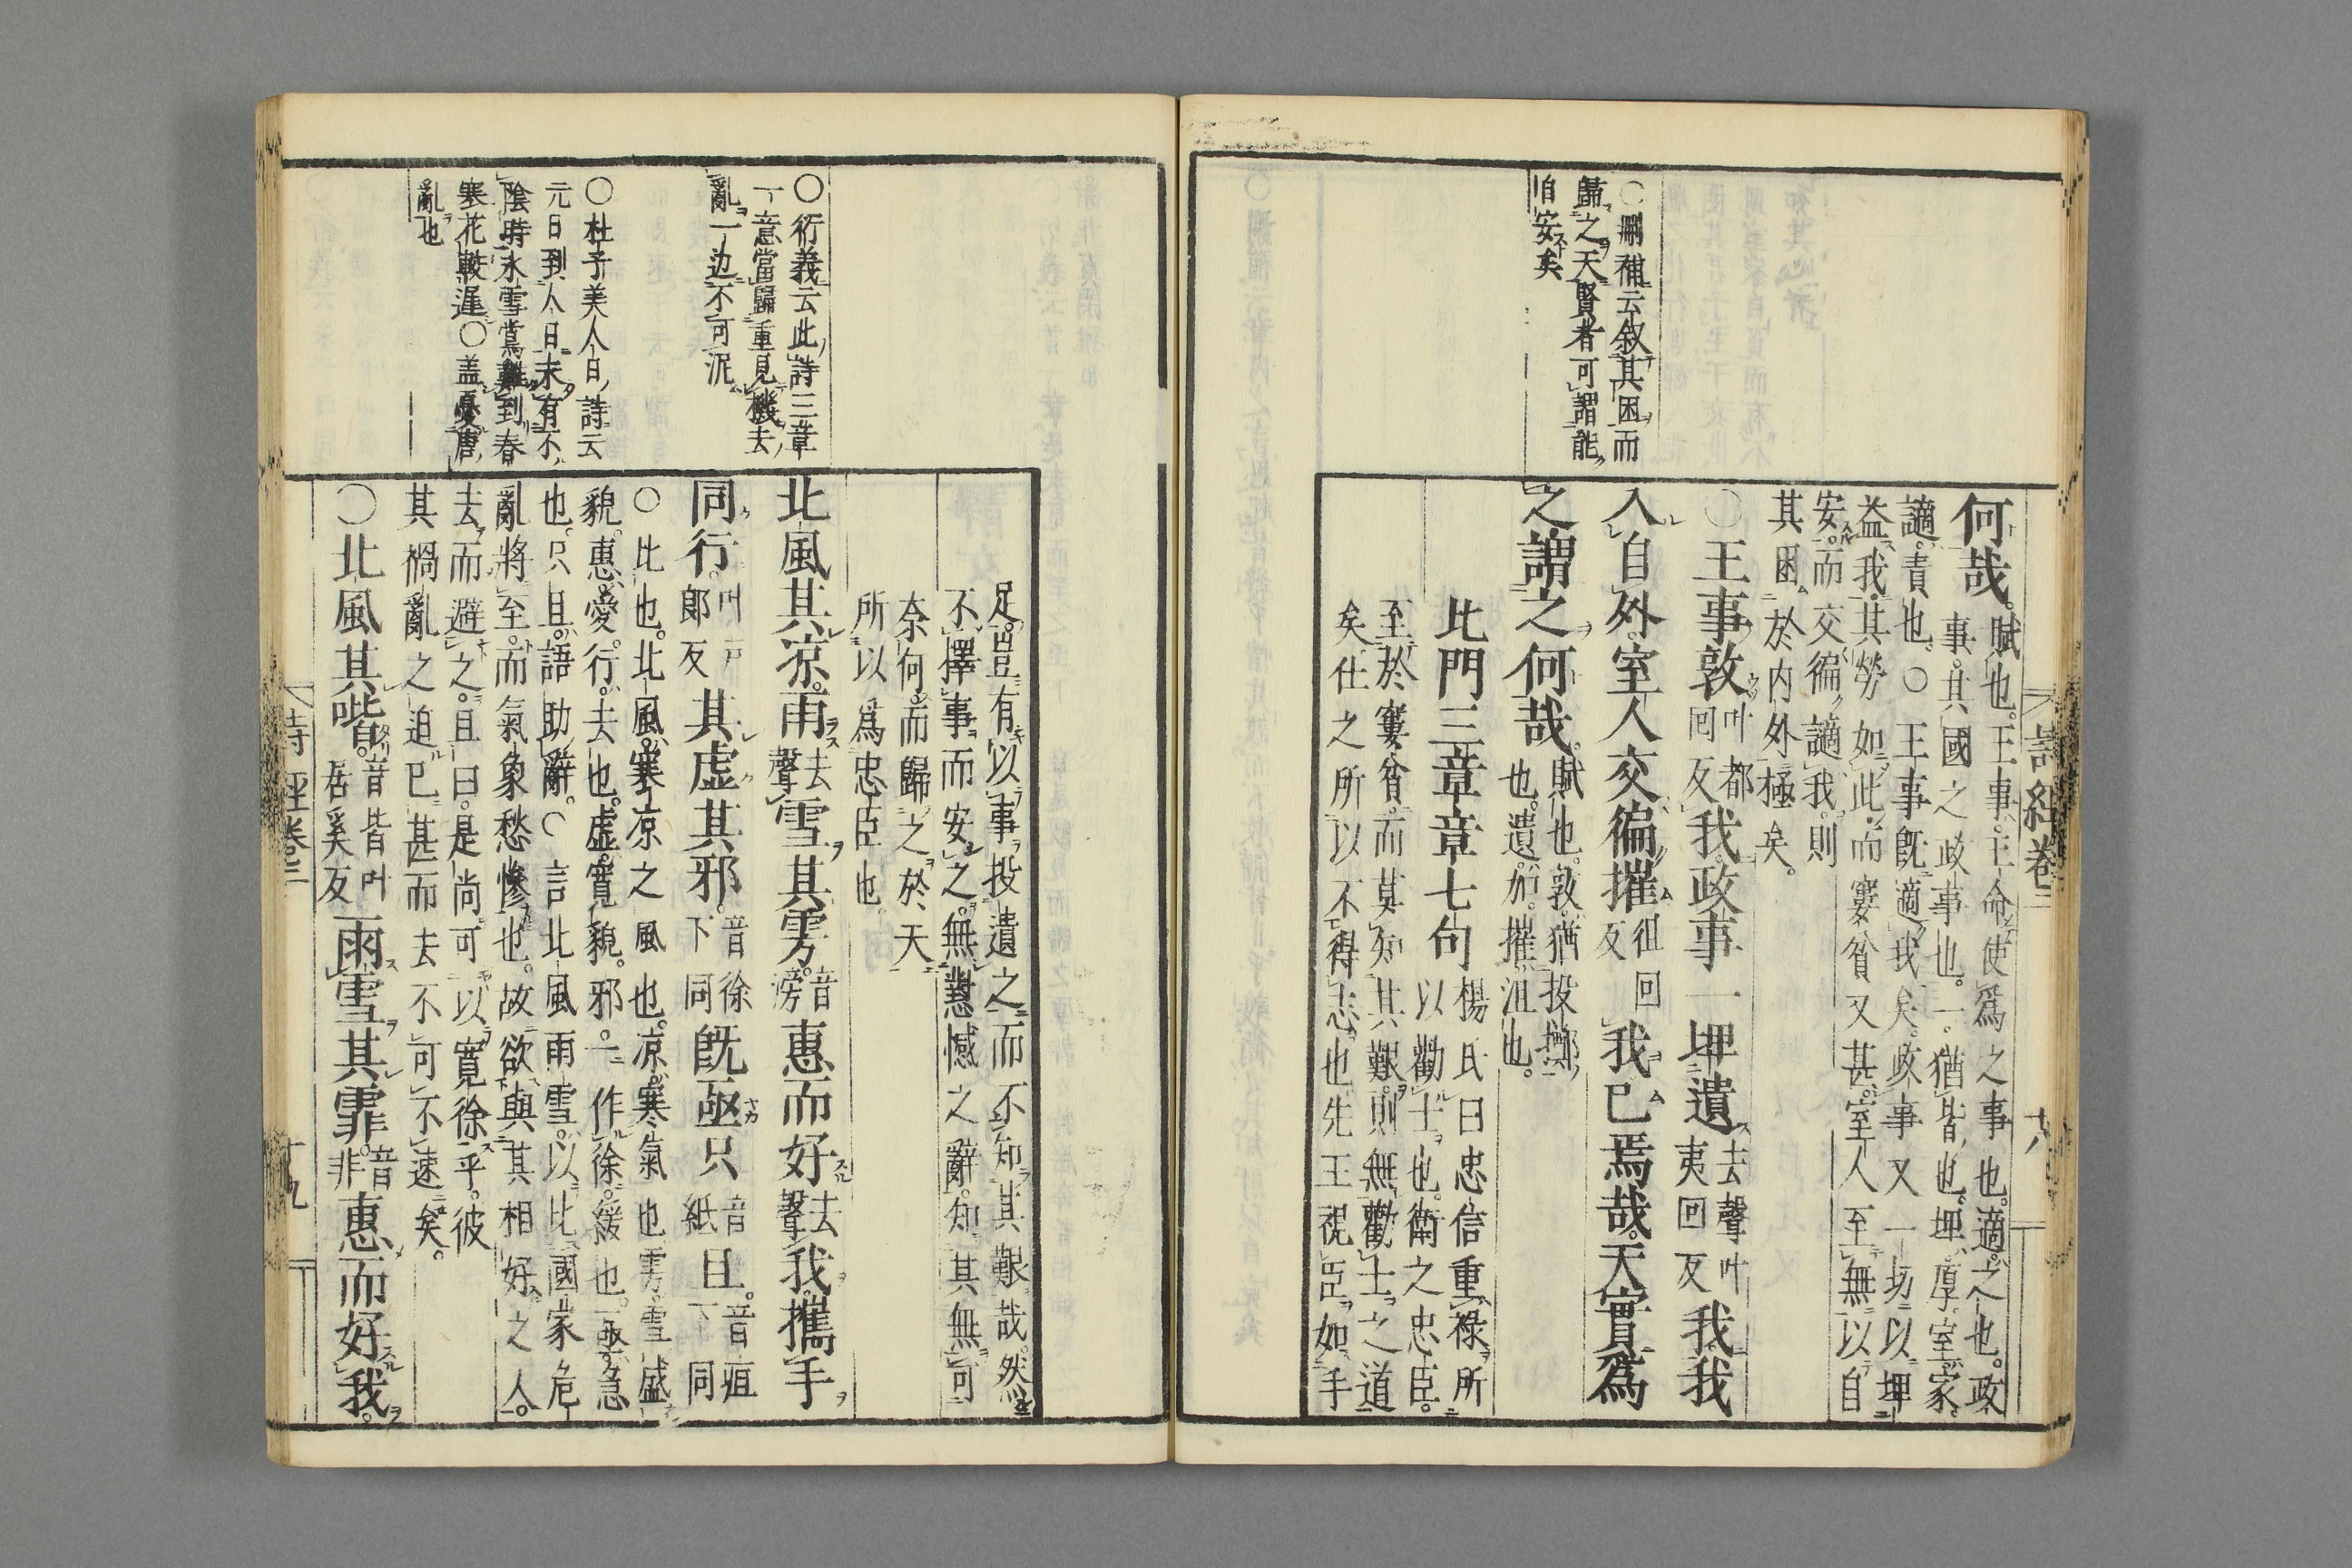 ○刪補云叙其困而
歸之天賢者可謂能
自安矣
詩經卷二
十八
何哉。賦也。王事。王命使爲之事也。適。之也。政
事。其國之政事也。一。猶皆也。埤。厚。室。家。
讁。責也。○王事既適我矣。政事又一切以埤
益我。其勞如此。而窶貧又甚。室人至無以自
安。而交徧讁我。則
其困於内外極矣。
○王事敦叶都回反我。政事一埤遺去聲叶夷回反我我
入自外。室人交徧摧徂回反我已焉哉。天實爲
之謂之何哉。賦也。敦。猶投擲也。遺。加。摧。沮也。
北門三章章七句楊氏曰忠信重祿。所以勸士也。衛之忠臣。
至於窶貧。而莫知其艱。則無勸士之道
矣。仕之所以不得志也先王視臣如手
足。豈有以事投遺之。而不知其艱哉。然
不擇事而安之。無懟憾之辭。知其無可
奈何。而歸之於天
所以爲忠臣也。
○衍義云此詩三章
一意當歸重見機去
亂一边不可泥
北風其凉。雨去聲雪其雱。音滂惠而好去聲我。攜手
同行。叶戸郎反其虚其邪。音徐下同既亟只音紙且。音疽下同
○比也。北風。寒凉之風也。凉。寒氣也雱。雪盛
貌。惠。愛。行。去也。虚。寛貌。邪。一作徐。緩也。亟。急
也。只且。語助辭。○言北風雨雪。以比國家危
亂將至。而氣象愁慘也。故欲與其相好之人。
去而避之。且曰。是尚可以寛徐乎。彼
其禍亂之迫已甚而去不可不速矣。
○杜子美人日詩云
元日到人日未有不
陰時氷雪鶯難到春
寒花較遲○盖憂唐
亂也
○北風其喈。音皆叶居奚反雨雪其霏。音非惠而好我。
詩經卷二
十九